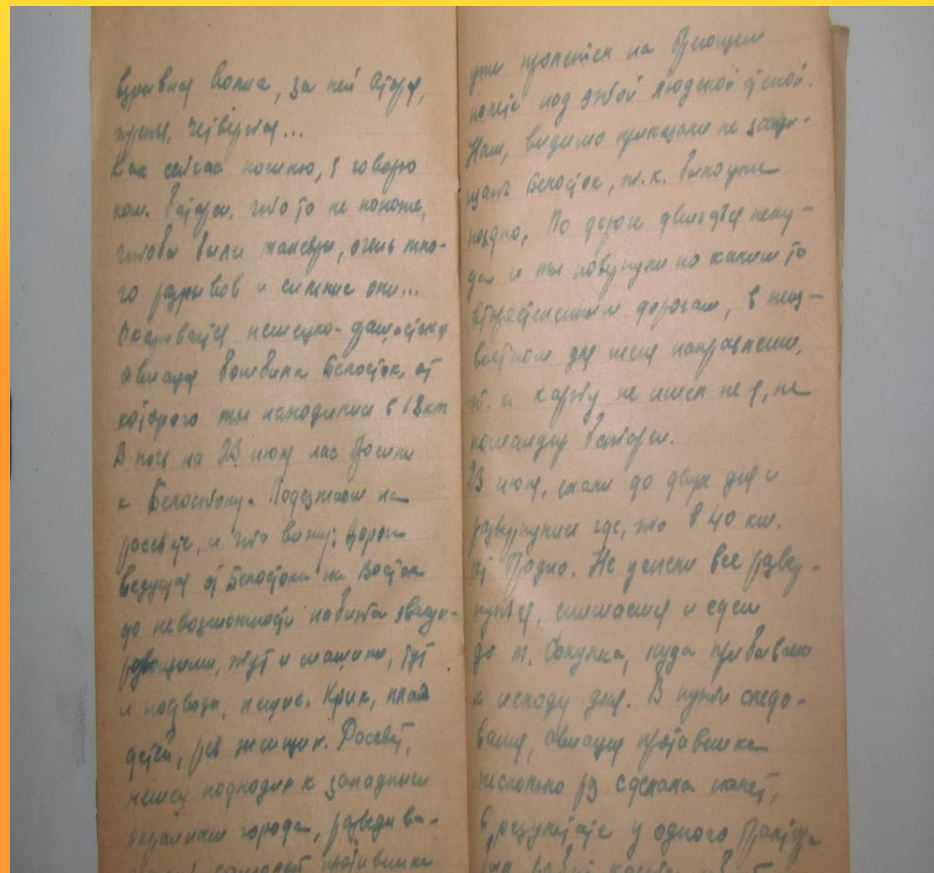 взрывная волна, за ней вторая,
третья, четвертая...
Как сейчас помню, я говорю
ком. батареи, что то не похоже,
чтобы были маневры, очень мно-
го разрывов и сильные они...
Оказывается немецко-фашистская
авиация бомбила Белосток, от
которого мы находились в 18 км
В ночь на 23 июня нас бросили
к Белостоку. Подезжаем на
рассвете, и что вижу: дорога
ведущая от Белостока на Восток
до невозможности набита эвакуи-
рующими, тут и машины, тут
и подводы, пешие. Крик, плач
детей, рев женщин. Рассвет,
немец подходит к западным
окраинам города, разведыва-
самолет противника
уже пронёсся на бреющем
полёте над этой людской стеной.
Нам, видимо приказали не защи-
щать Белосток, т.к. было уже
поздно. По дороге двигаться неку-
да и мы повернули по каким то
второстепенным дорогам, в неиз-
вестном для меня направлении,
т. к карту не имел не я, не
командир батареи.
23 июня, ехали до двух дня и
развернулись где, то в 40 км.
от Гродно. Не успели все развер-
нуться, снимаемся и едем
до м. Сокулка, куда прибываем
к исходу дня. В пути следо-
вания, авиация противника
несколько раз сделала налет,
в результате у одного